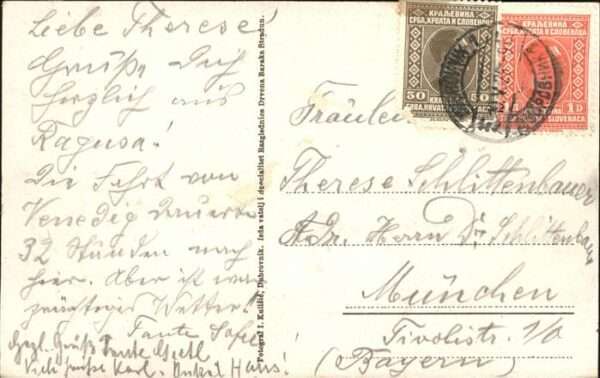 Liebe Therese!
Grüße Dich
herzlich aus
Ragusa!
Die Fahrt von
Venedig dauerte
32 Stunden nach
hier. Aber ist war
Wetter!
Tante Sofie
Hzgl. Grüße Tante Gretl
Viele Grüße Karl. Onkel Hans!
Fotograf I. Kulišić, Dubrovnik. Jeda vatelj i specialitet Razglednice Drvena Baraka Stradun.
КРАЉЕВИНА
СРБА, ХРВАТА И СЛОВЕНАЦА
50 50
КРАЉЕВИНА
СРБА, ХРВАТА И СЛОВЕНАЦА
1 D
SLOVENACA
Fräulein
Therese Schlittenbauer
Adr. Herrn Dr. Schlittenbauer
München
Tivolistr. 1/0
(Bayern)